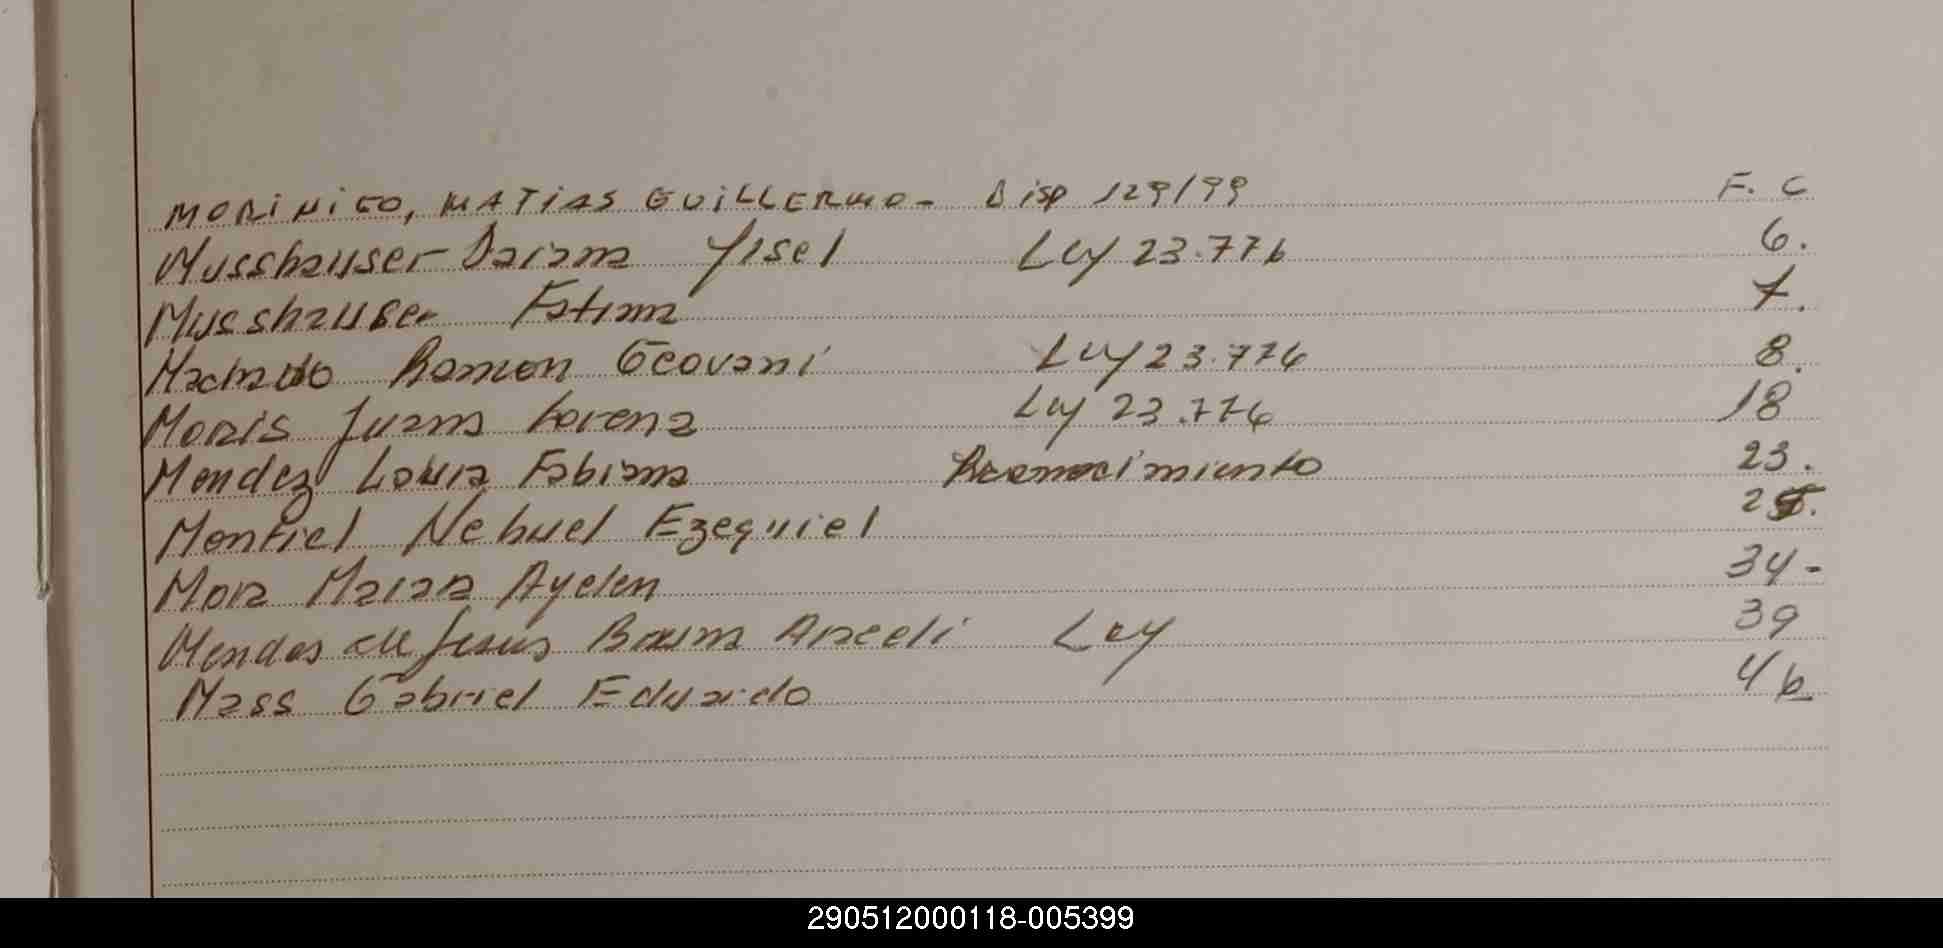 MORINIGO, MATIAS GUILLERMO - Disp 129/99 F. C
Musshauser Daiana Yisel Ley 23.776 6.
Musshauser Fatima 7.
Machado Ramon Geovani Ley 23.776 8.
Moris Juana Lorena Ley 23.776 18
Mendez Laura Fabiana Reconocimiento 23.
Montiel Nehuel Ezequiel
Mora Maira Ayelen 34-
Mendes de Jesus Araceli Ley 39
Mass Gabriel Eduardo 46
290512000118-005399